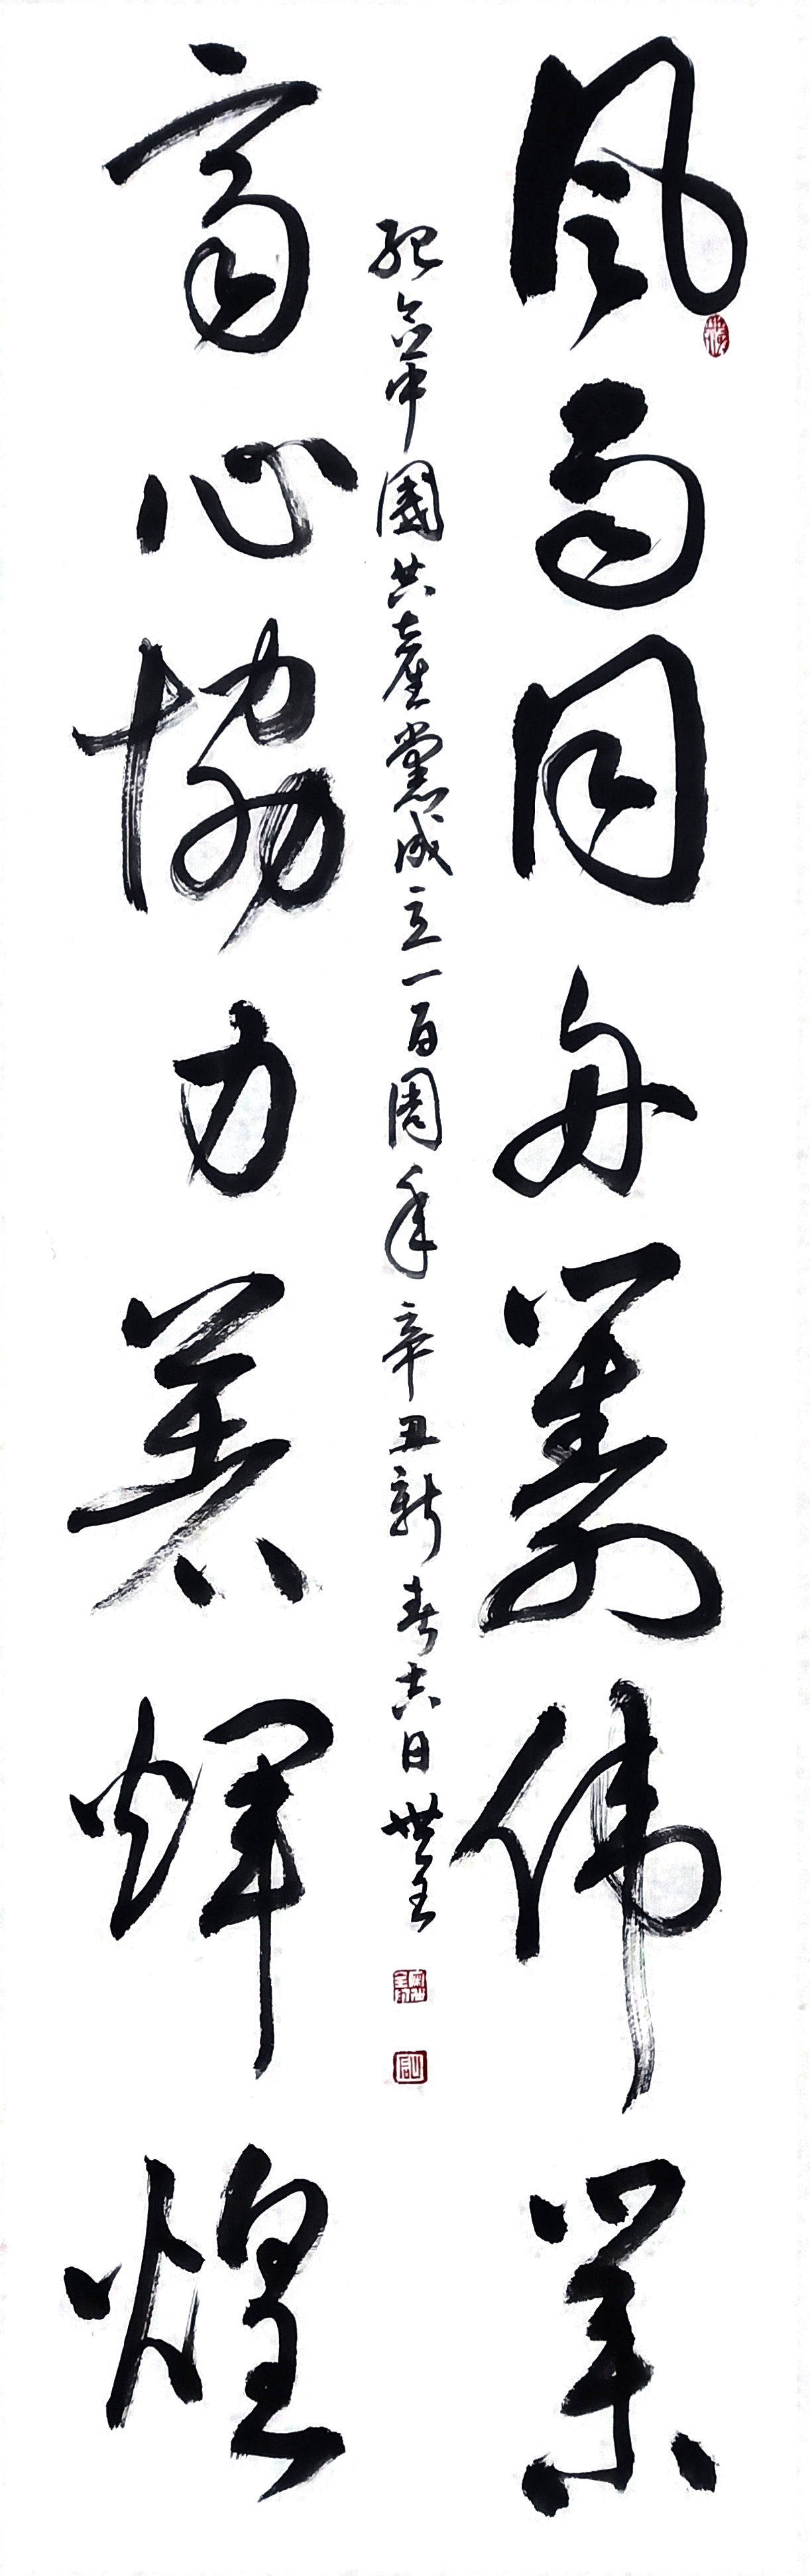 風雨同舟籌偉業
齊心協力輝煌
紀念中國共產黨成立一百周年 辛丑新春日 世全